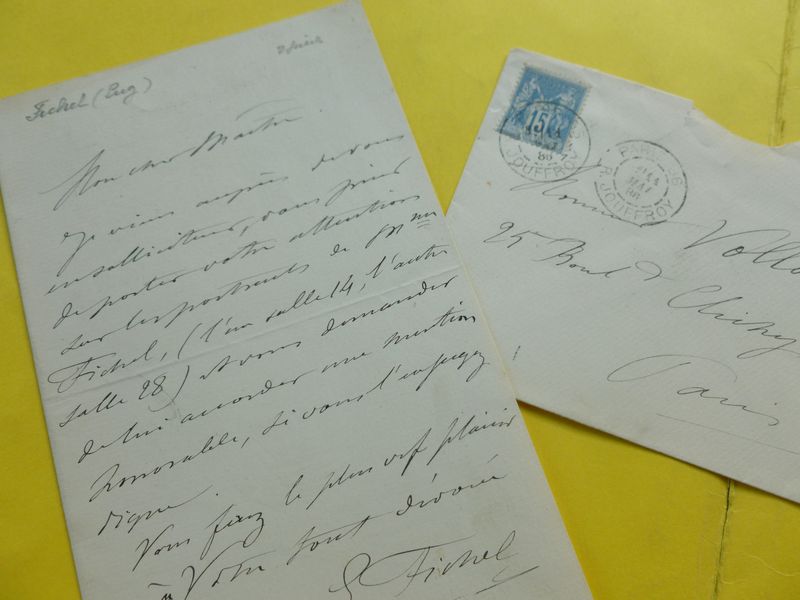 Fichel (Eug)
Mon cher Maître
Je viens auprès de vous
en solliciteur, vous prier
de porter votre attention
sur les portraits de Mme
Fichel, (l'un salle 14, l'autre
salle 28) et vous demander
de lui accorder une mention
honorable, si vous l'en jugez
digne.
Vous ferez le plus vif plaisir
à Votre tout dévoué
E Fichel
15
JOUFFROY
PARIS-26
MAI
R. JOUFFROY
Monsieur Vollo
25 Boul d Clichy
Paris